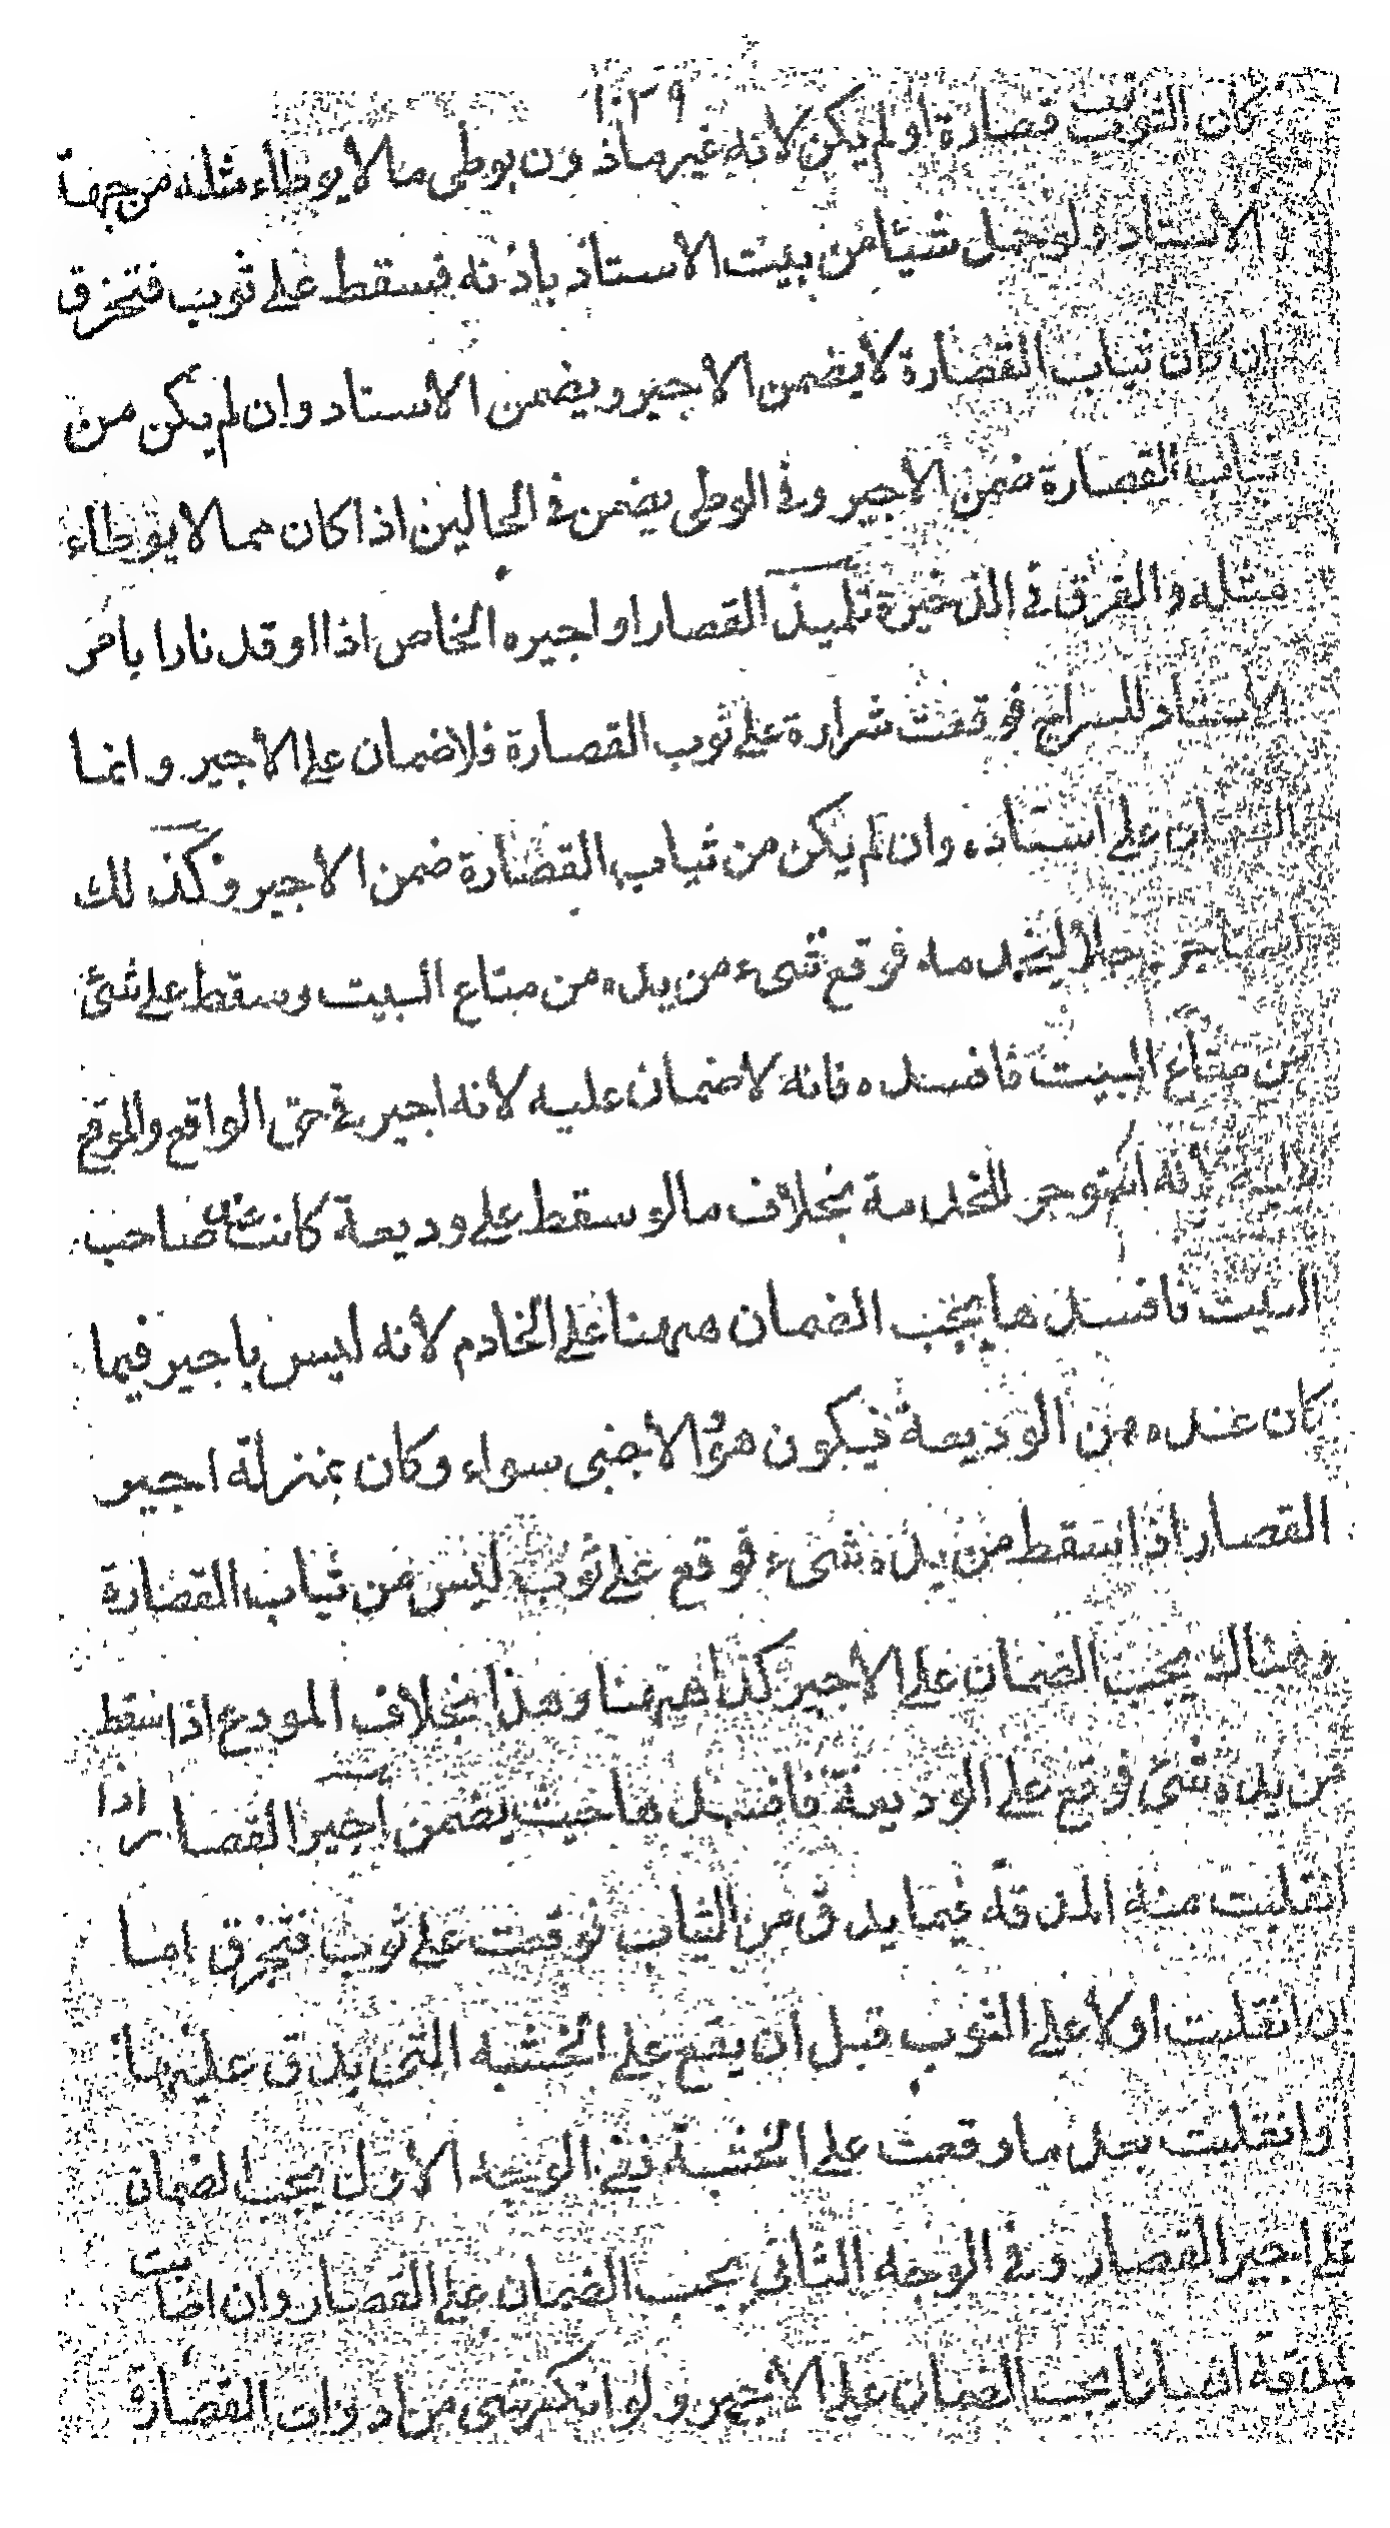 ١٠٣٩
كان الثوب ثوب قصارة اولم يكن لانه غير ماذون بوطى ما لا يوطاء مثله من جهة
الاستاذ ولو حمل شيئا من بيت الاستاذ باذنه فسقط على ثوب فتخرق
ان كان ثياب القصارة لا يضمن الاجير ويضمن الاستاد وان لم يكن من
ثياب القصارة ضمن الاجير وفى الوطى يضمن فى الحالين اذا كان مما لا يوطاء
مثله والفرق فى الذخيرة تلميذ القصار او اجيره الخاص اذا اوقد نارا بامر
الاستاد للسراج فوقعت شرارة على ثوب القصارة فلا ضمان على الاجير وانما
الضمان على استاده وان لم يكن من ثياب القصارة ضمن الاجير وكذلك
استاجر رجلا ليخدمه فوقع شىء من يده من متاع البيت وسقط على شئ
من متاع البيت فافسده فانه لا ضمان عليه لانه اجير فى حق الواقع والموقع
عليه لانه استوجر للخدمة بخلاف مالو سقط على وديعة كانت عند صاحب
البيت فافسدها يجب الضمان ههنا على الخادم لانه ليس باجير فيما
كان عنده من الوديعة فيكون هو والاجنبى سواء وكان بمنزلة اجير
القصار اذا سقط من يده شىء فوقع على ثوب ليس من ثياب القصارة
وهناك يجب الضمان على الاجير كذا ههنا وهذا بخلاف المودع اذا سقط
من يده شئ فوقع على الوديعة فافسدها حيث يضمن اجير القصار اذا
انقلبت منه المدقة فيما يدق من الثياب فوقعت على ثوب فتخرق اما
ان انقلبت اولا على الثوب قبل ان يقع على الخشبة التى يدق عليها
وانقلبت بعد ما وقعت على الخشبة ففى الوجه الاول يجب الضمان
على اجير القصار وفى الوجه الثانى يجب الضمان على القصار وان اصابت
المدقة انسانا يجب الضمان على الاجير ولو انكسر شى من ادوات القصارة